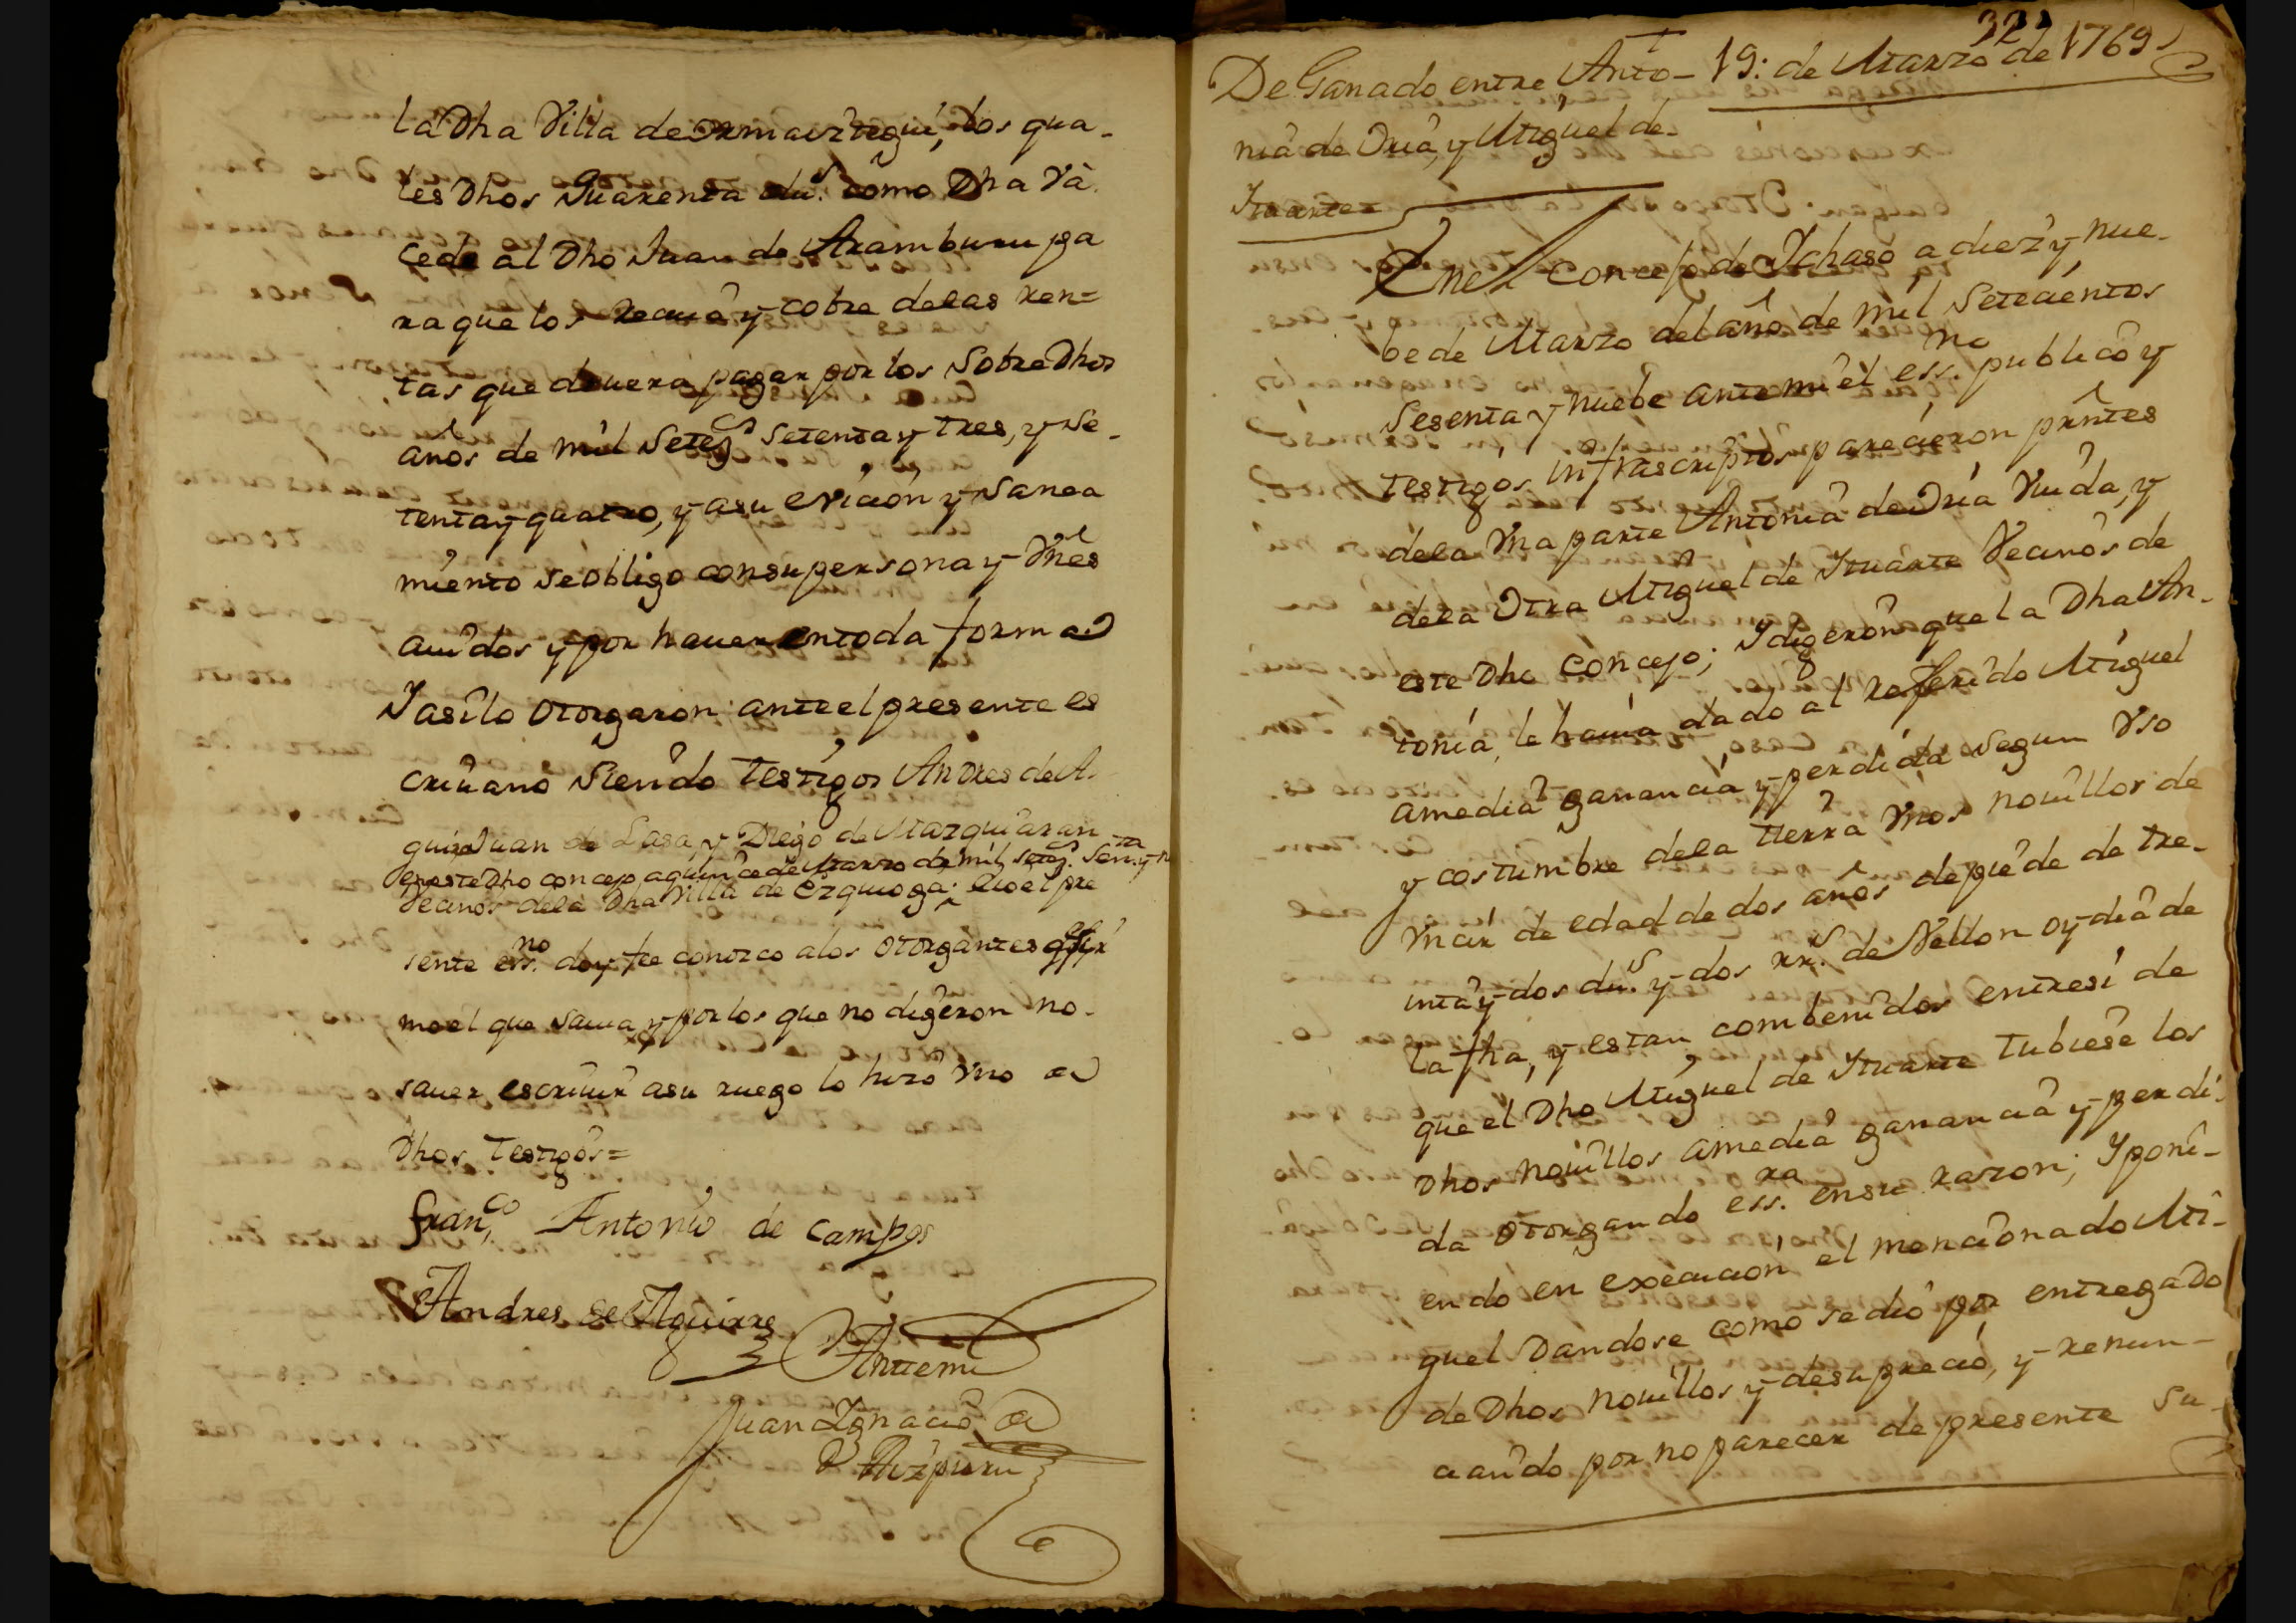 la Dha Villa de Ormaiztegui, los qua-
les Dhos Quarenta du.s como Dha và
cede al Dho Juan de Aramburu pa
ra que los reciuà y cobre de las ren=
tas que deuera pagar por los Sobre Dhos
años de mil Setez.s Setenta y tres, y Se-
tenta y quatro, y a su evicion y Sanea
miento se obligo con su persona y Vnes
auidos y por hauer en toda forma
Y asilo otorgaron ante el presente es
criuano Siendo Testigos Andres de A-
guirre Juan de Lasa, y Diego de Mazquiaran
en este Dho concejo a quince de Marzo de mil setez.s Sen.ta y n
Vecinos de la Dha Villa de Ezquioga; Yo el pre
sente ess.no doy fee conozco a los otorgantes fir
mo el que sauia y por los que no digeron no-
sauer escriuir a su ruego lo hizo Vno de
Dhos Testigos=
Fran.co Antonio de Campos
Andres de Aguirre
Antemi
Juan Ignacio de
Aizpuru
321
De Ganado entre Anto- 19: de Marzo de 1769
nia de Oria, y Miguel de-
Ituarte
En el Concejo de Ichaso a diez y nue-
be de Marzo del año de mil Setecientos
Sesenta y nuebe ante mi el ess.no publico y
testigos infrascriptos parecieron prntes
de la Vna parte Antonia de Oria Viuda, y
de la Otra Miguel de Ituarte Vecinos de
este Dho Concejo; Y digeron que la Dha An-
tonia, le hauia dado al referido Miguel
a media ganancia y perdida segun Vso
y costumbre de la tierra Vnos nouillos de
Vncir de edad de dos años de pie de de tre-
inta y dos du.s y dos rr.s de Vellon oy dia de
la fha, y estan combenidos entresi de
que el Dho Miguel de Ituarte tubiese los
Dhos nouillos a media ganancia y perdi-
da otorgando ess.ra en su razon; Y poni-
endo en execucion el mencionado Mi-
guel Dandose como se dio por entregado
de Dhos nouillos y de su precio, y renun-
ciando por no parecer de presente su-